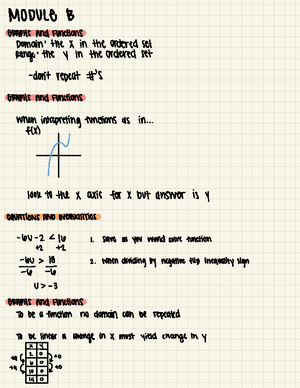 MODULE B
Graphs and Functions
Domain: the X in the ordered set
Range: the Y in the ordered set
-don't repeat #'s
Graphs and Functions
When intrepreting functions as in...
f(x)
look to the x axis for x but answer is y
Equations and Inequalities
-6u - 2 < 16
+2 +2
-6u > 18
-6 -6
u > -3
1. Solve as you would solve function
2. When dividing by negative flip inequality sign
Graphs and Functions
To be a function no domain can be repeated
To be linear a change in x must yield change in y
X Y